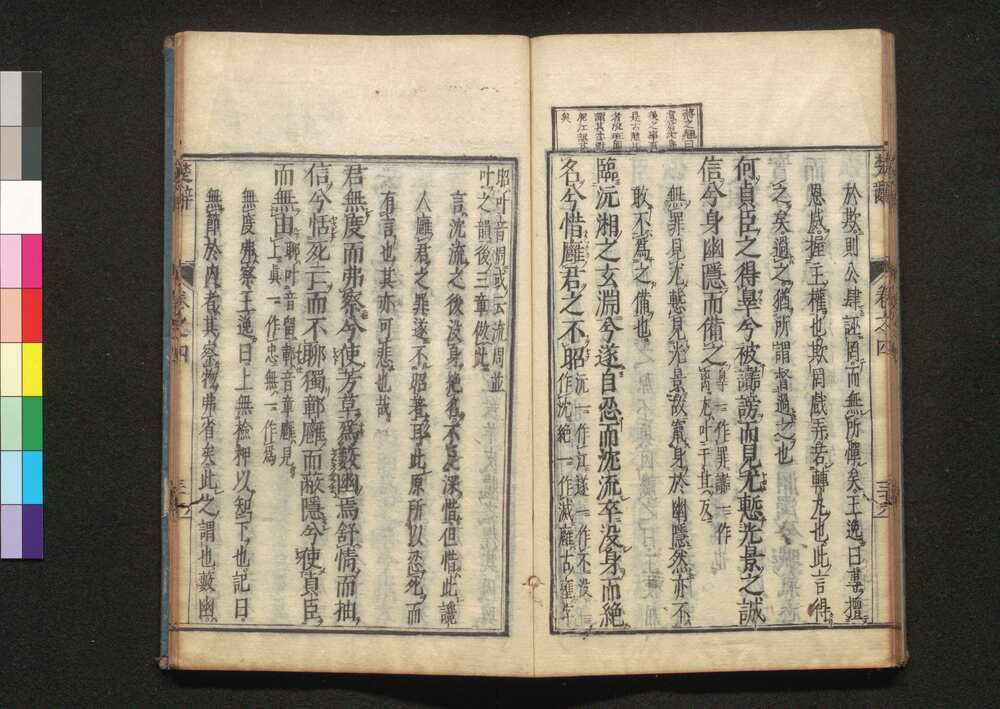 於欺則公肆誣罔而無所憚矣王逸曰專擅
恩威握主權也欺罔戲弄若轉丸也此言得
之矣過之猶所謂督過之之也
何貞臣之得辠兮被讟謗而見尤慙光景之誠
信兮身幽隱而備之辠一作罪讟一作
離尤叶于其反
無罪見尤慙見光景故竄身於幽隱然亦不
敢不爲之備也
臨沅湘之玄淵兮遂自忍而沈流卒没身而絶
名兮惜廱君之不昭沅一作江遂一作不没一
作沈絶一作滅廱古壅字
楚辭
卷之四
昭叶音周或云流周並
叶之韻後三章倣此
言沈流之後没身絶名不足深惜但惜此讒
人廱君之罪遂不昭著耳此原所以忍死而
有言也其亦可悲也哉
君無度而弗察兮使芳草爲藪幽焉舒情而抽
信兮恬死亡而不聊獨鄣廱而蔽隱兮使貞臣
而無由聊叶音留鄣音章廱見
上貞一作忠無一作爲
無度弗察王逸曰上無檢押以知下也記曰
無節於内者其察物弗省矣此之謂也藪幽
楚辭
卷之四